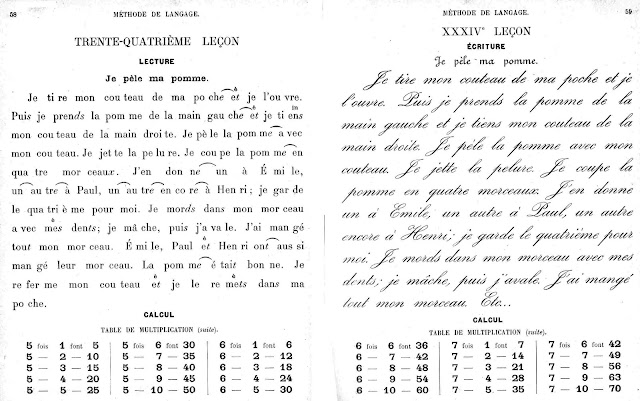 58 MÉTHODE DE LANGAGE.
TRENTE-QUATRIÈME LEÇON
LECTURE
Je pèle ma pomme.
Je ti re mon cou teau de ma po che et je l'ou vre.
Puis je prends la pom me de la main gau che et je ti ens
mon cou teau de la main droi te. Je pè le la pom me a vec
mon cou teau. Je jet te la pe lu re. Je cou pe la pom me en
qua tre mor ceaux. J'en don ne un à É mi le,
un au tre à Paul, un au tre en co re à Hen ri; je gar de
le qua tri è me pour moi. Je mords dans mon mor ceau
a vec mes dents; je mâ che, puis j'a va le. J'ai man gé
tout mon mor ceau. É mi le, Paul et Hen ri ont aus si
man gé leur mor ceau. La pom me é tait bon ne. Je
re fer me mon cou teau et je le re mets dans ma
po che.
CALCUL
TABLE DE MULTIPLICATION (suite).
5 fois 1 font 5 5 fois 6 font 30 6 fois 1 font 6
5 — 2 — 10 5 — 7 — 35 6 — 2 — 12
5 — 3 — 15 5 — 8 — 40 6 — 3 — 18
5 — 4 — 20 5 — 9 — 45 6 — 4 — 24
5 — 5 — 25 5 — 10 — 50 6 — 5 — 30
MÉTHODE DE LANGAGE. 59
XXXIVe LEÇON
ÉCRITURE
Je pèle ma pomme.
Je tire mon couteau de ma poche et je
l'ouvre. Puis je prends la pomme de la
main gauche et je tiens mon couteau de la
main droite. Je pèle la pomme avec mon
couteau. Je jette la pelure. Je coupe la
pomme en quatre morceaux. J'en donne
un à Emile, un autre à Paul, un autre
encore à Henri; je garde le quatrième pour
moi. Je mords dans mon morceau avec mes
dents; je mâche, puis j'avale. J'ai mangé
tout mon morceau. Etc...
CALCUL
TABLE DE MULTIPLICATION (suite).
6 fois 6 font 36 7 fois 1 font 7 7 fois 6 font 42
6 — 7 — 42 7 — 2 — 14 7 — 7 — 49
6 — 8 — 48 7 — 3 — 21 7 — 8 — 56
6 — 9 — 54 7 — 4 — 28 7 — 9 — 63
6 — 10 — 60 7 — 5 — 35 7 — 10 — 70